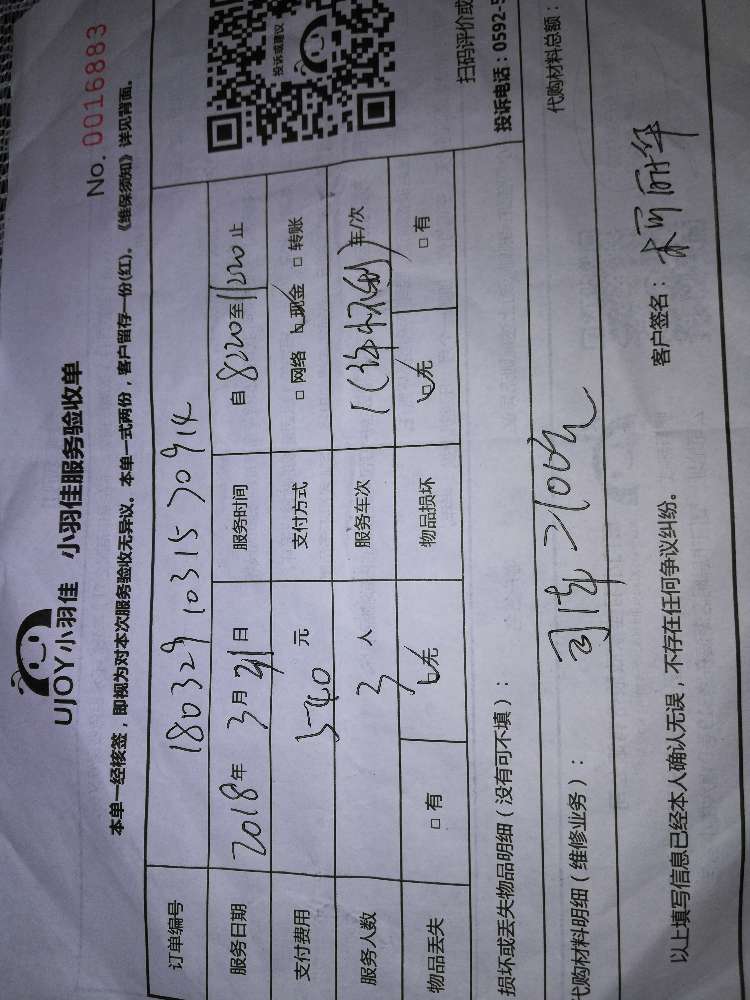 UJOY小羽佳 小羽佳服务验收单
No. 0016883
本单一经核签，即视为对本次服务验收无异议。本单一式两份，客户留存一份(红)。《维保须知》详见背面。
订单编号 180329103153094
投诉或建议
服务日期 2018年3月31日 服务时间 自8:20至11:20止
支付费用 540元 支付方式 □网络 □现金 □转账
服务人数 3人 服务车次 年/次
物品丢失 □有 □无 物品损坏 □无 □有
扫码评价或
损坏或丢失物品明细（没有可不填）：
投诉电话：0592-5
代购材料明细（维修业务）：
代购材料总额：
以上填写信息已经本人确认无误，不存在任何争议纠纷。
客户签名：